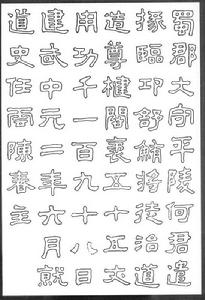 蜀郡大守平陵何君遣
掾臨邛舒鮪將徒治道
造尊楗閣袤五十五丈
用功千一百九十八日
建武中元二年六月就
道史任雲陳春主